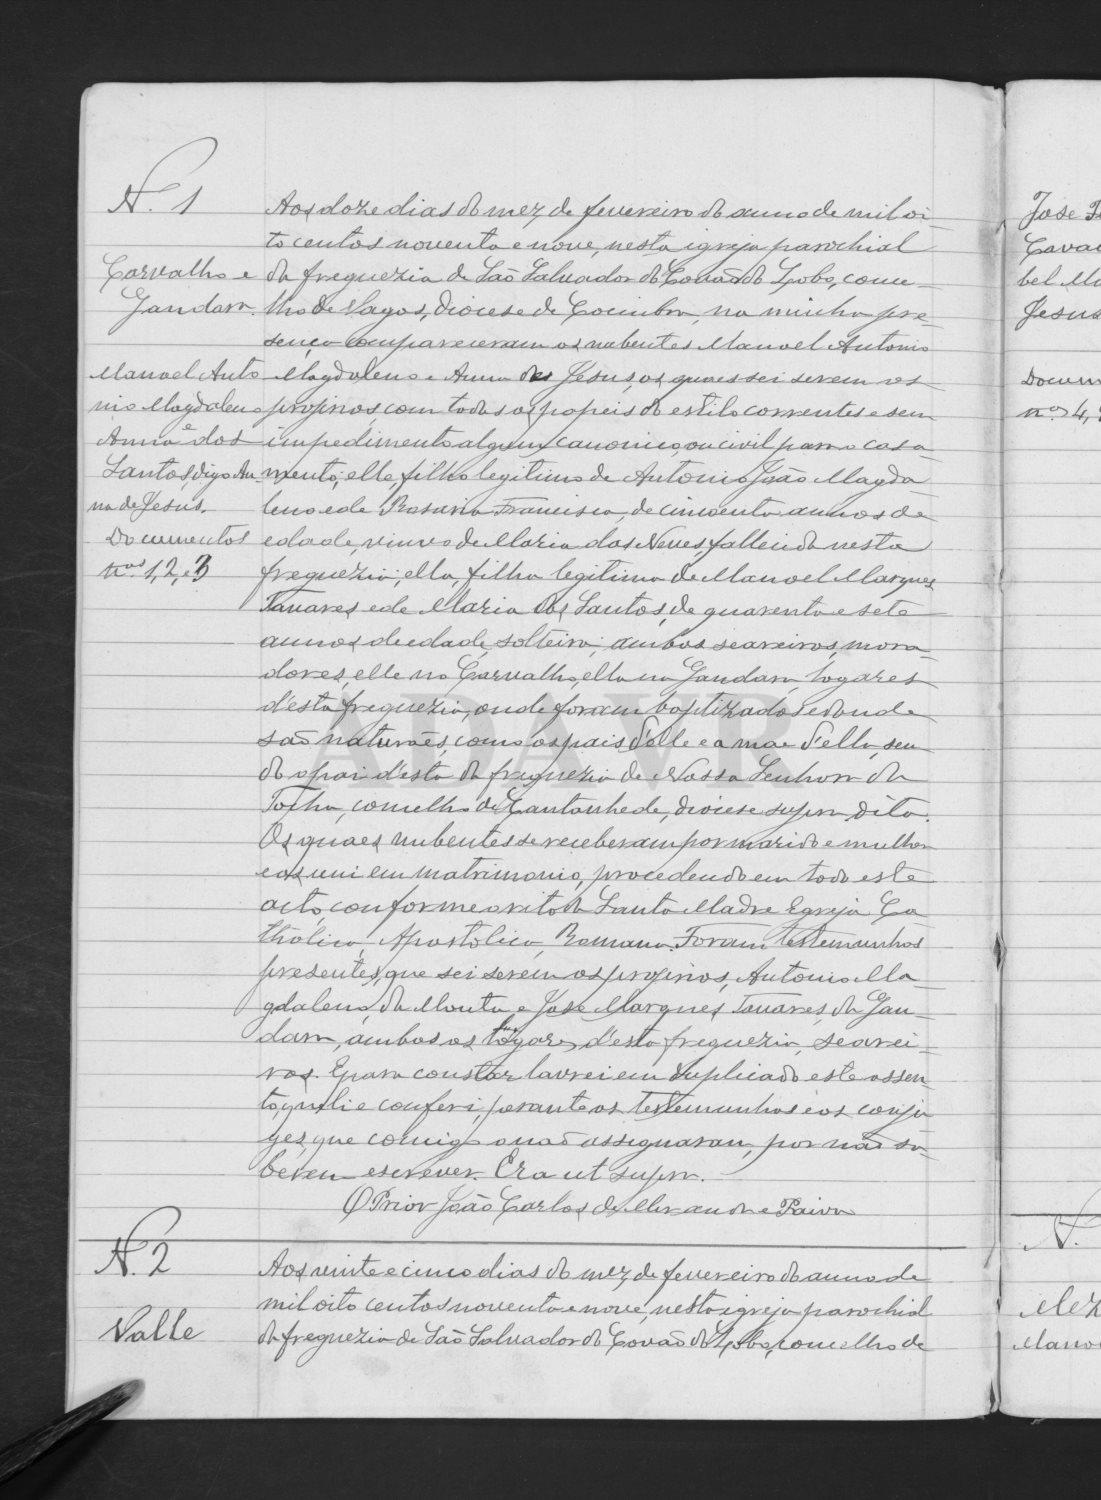 N. 1
Carvalho e
Gandara.
Manoel Anto
nio Magdaleno
e
Anna dos
Santos, digo An
na de Jesus.
Documentos
n.os 1, 2, e 3
Aos doze dias do mez de fevereiro do anno de mil oi
to centos noventa e nove, nesta igreja parochial
da freguezia de São Salvador do Covão do Lobo, conce-
lho de Vagos, diocese de Coimbra, na minha pre-
sença compareceram os nubentes Manoel Antonio
Magdaleno e Anna de Jesus os quaes sei serem os
proprios com todos os papeis do estilo correntes e sem
impedimento algum canonico, ou civil para o casa-
mento; elle, filho legitimo de Antonio João Magda
leno e de Rosaria Francisca, de cincoenta annos de
edade, viuvo de Maria das Neves, fallecida nesta
freguezia; ella, filha legitima de Manoel Marques
Tavares e de Maria dos Santos, de quarenta e sete
annos de edade, solteira; ambos seareiros, mora-
dores, elle no Carvalho, ella na Gandara, logares
d'esta freguezia, onde foram baptizados e donde
são naturaes, como os pais d'elle e a mãe d'ella, sen
do o pai d'esta da freguezia de Nossa Senhora da
Tocha, concelho de Cantanhede, diocese supra dita.
Os quaes nubentes se receberam por marido e mulher
e os uni em matrimonio, procedendo em todo este
acto, conforme o rito da Santa Madre Egreja Ca
tholica, Apostolica, Romana. Foram testemunhas
presentes, que sei serem os proprios, Antonio Ma-
gdaleno, da Mouta e José Marques Tavares, da Gan-
dara, ambos os logares d'esta freguezia, searei-
ros. E para constar lavrei em duplicado este assen
to, que li e conferi, perante as testemunhas e os conju
ges, que comigo o não assignaram, por não sa-
berem escrever. Era ut supra.
O Prior João Carlos de Miranda e Paiva
N. 2
Valle
Aos vinte e cinco dias do mez de fevereiro do anno de
mil oito centos noventa e nove, nesta igreja parochial
da freguezia de São Salvador do Covão do Lobo, concelho de
José
Jesus
n.os 4,
N.
ADAVR